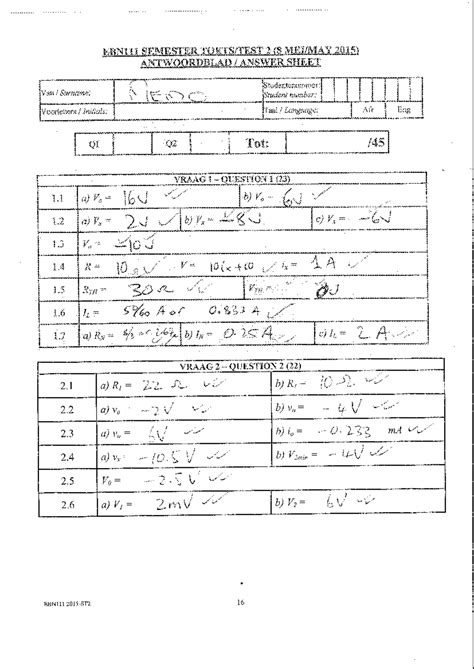 EBN111 SEMESTER TOETS/TEST 2 (8 MEI/MAY 2015)
ANTWOORDBLAD / ANSWER SHEET
Van / Surname: MEMO Studentenommer: Student number:
Voorletters / Initials: Taal / Language: Afr Eng
Q1 Q2 Tot: /45
VRAAG 1 – QUESTION 1 (23)
1.1 a) Vo = 16V b) Vo = 6V
1.2 a) Vx = 2V b) Vx = -8V c) Vx = -6V
1.3 Vo = -10V
1.4 R = 10 V = 10ix+10 ix = 1A
1.5 RTH = 30Ω VTH = 0V
1.6 IL = 5/60 A or 0.833 A
1.7 a) RN = 8/3 or 2.67Ω b) IN = 0.25A c) IL = 2 A
VRAAG 2 – QUESTION 2 (22)
2.1 a) R1 = 22 Ω b) R1 = 10 Ω
2.2 a) vo = -2V b) vo = -4V
2.3 a) vo = 6V b) io = -0.233 mA
2.4 a) vo = -10.5V b) V2min = -4V
2.5 Vo = -2.5V
2.6 a) V1 = 2mV b) V2 = 6V
EBN111 2015-ST2 16